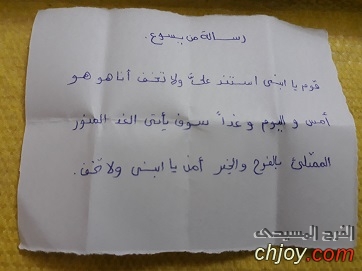 رسالة من يسوع.
قوم يا ابنى استند علىَّ ولا تخف أنا هو هو
أمس و اليوم و غداً سوف يأتى الغد المنور
الممتلئ بالفرح والخير أمن يا ابنى ولا تخف.
الفرح المسيحى
chjoy.com